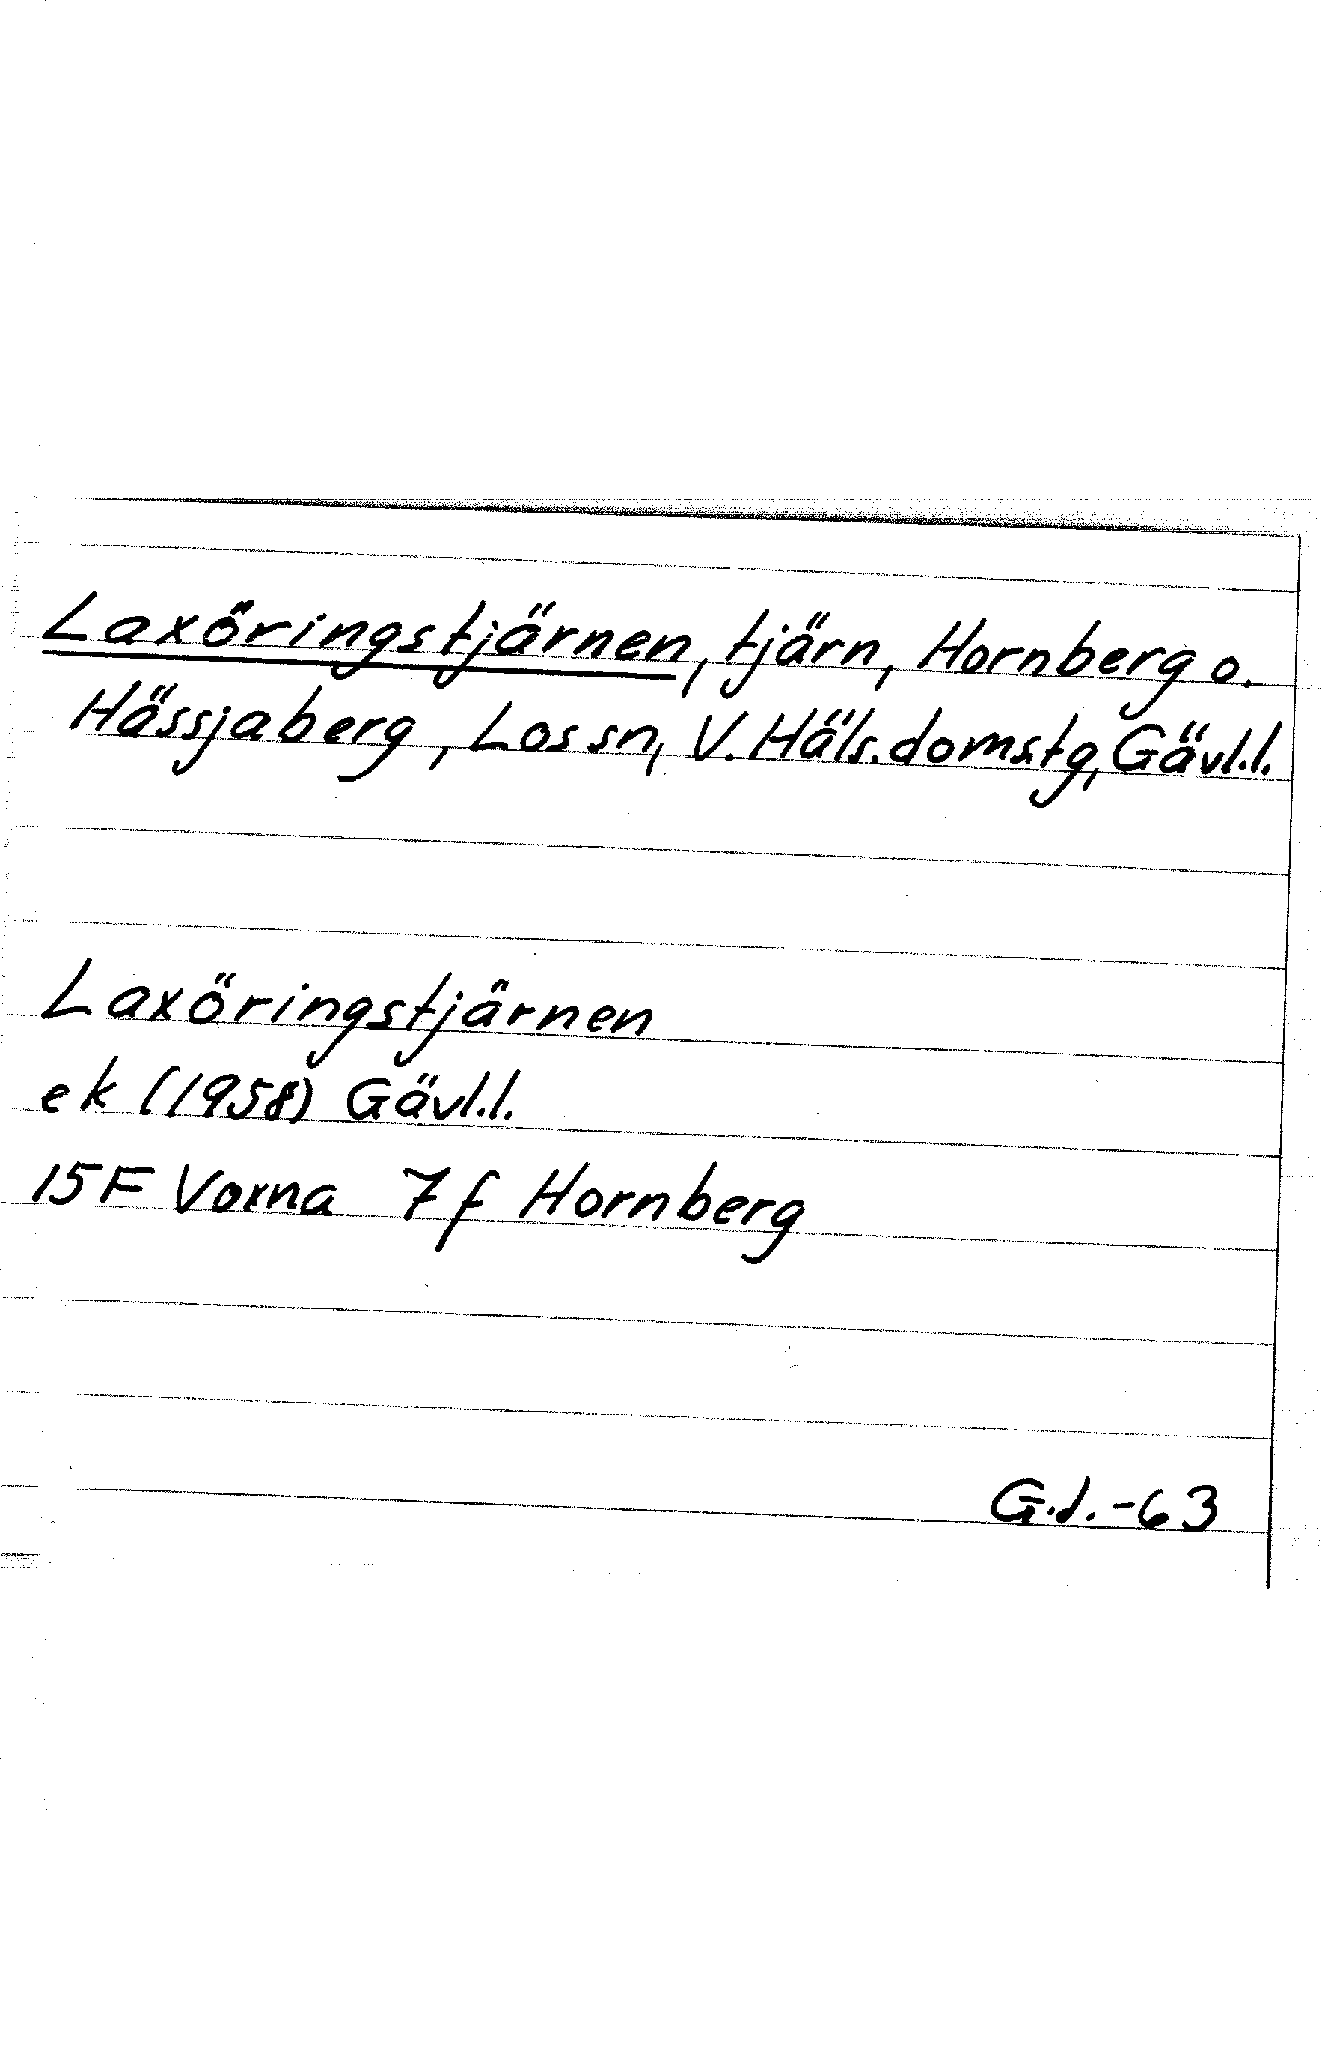 Laxöringstjärnen, tjärn, Hornberg o.
Hässjaberg, Los sn, V. Häls. domstg, Gävl.l.
Laxöringstjärnen
ek (1958) Gävl.l.
15F Voxna 7f Hornberg
G.d. -63